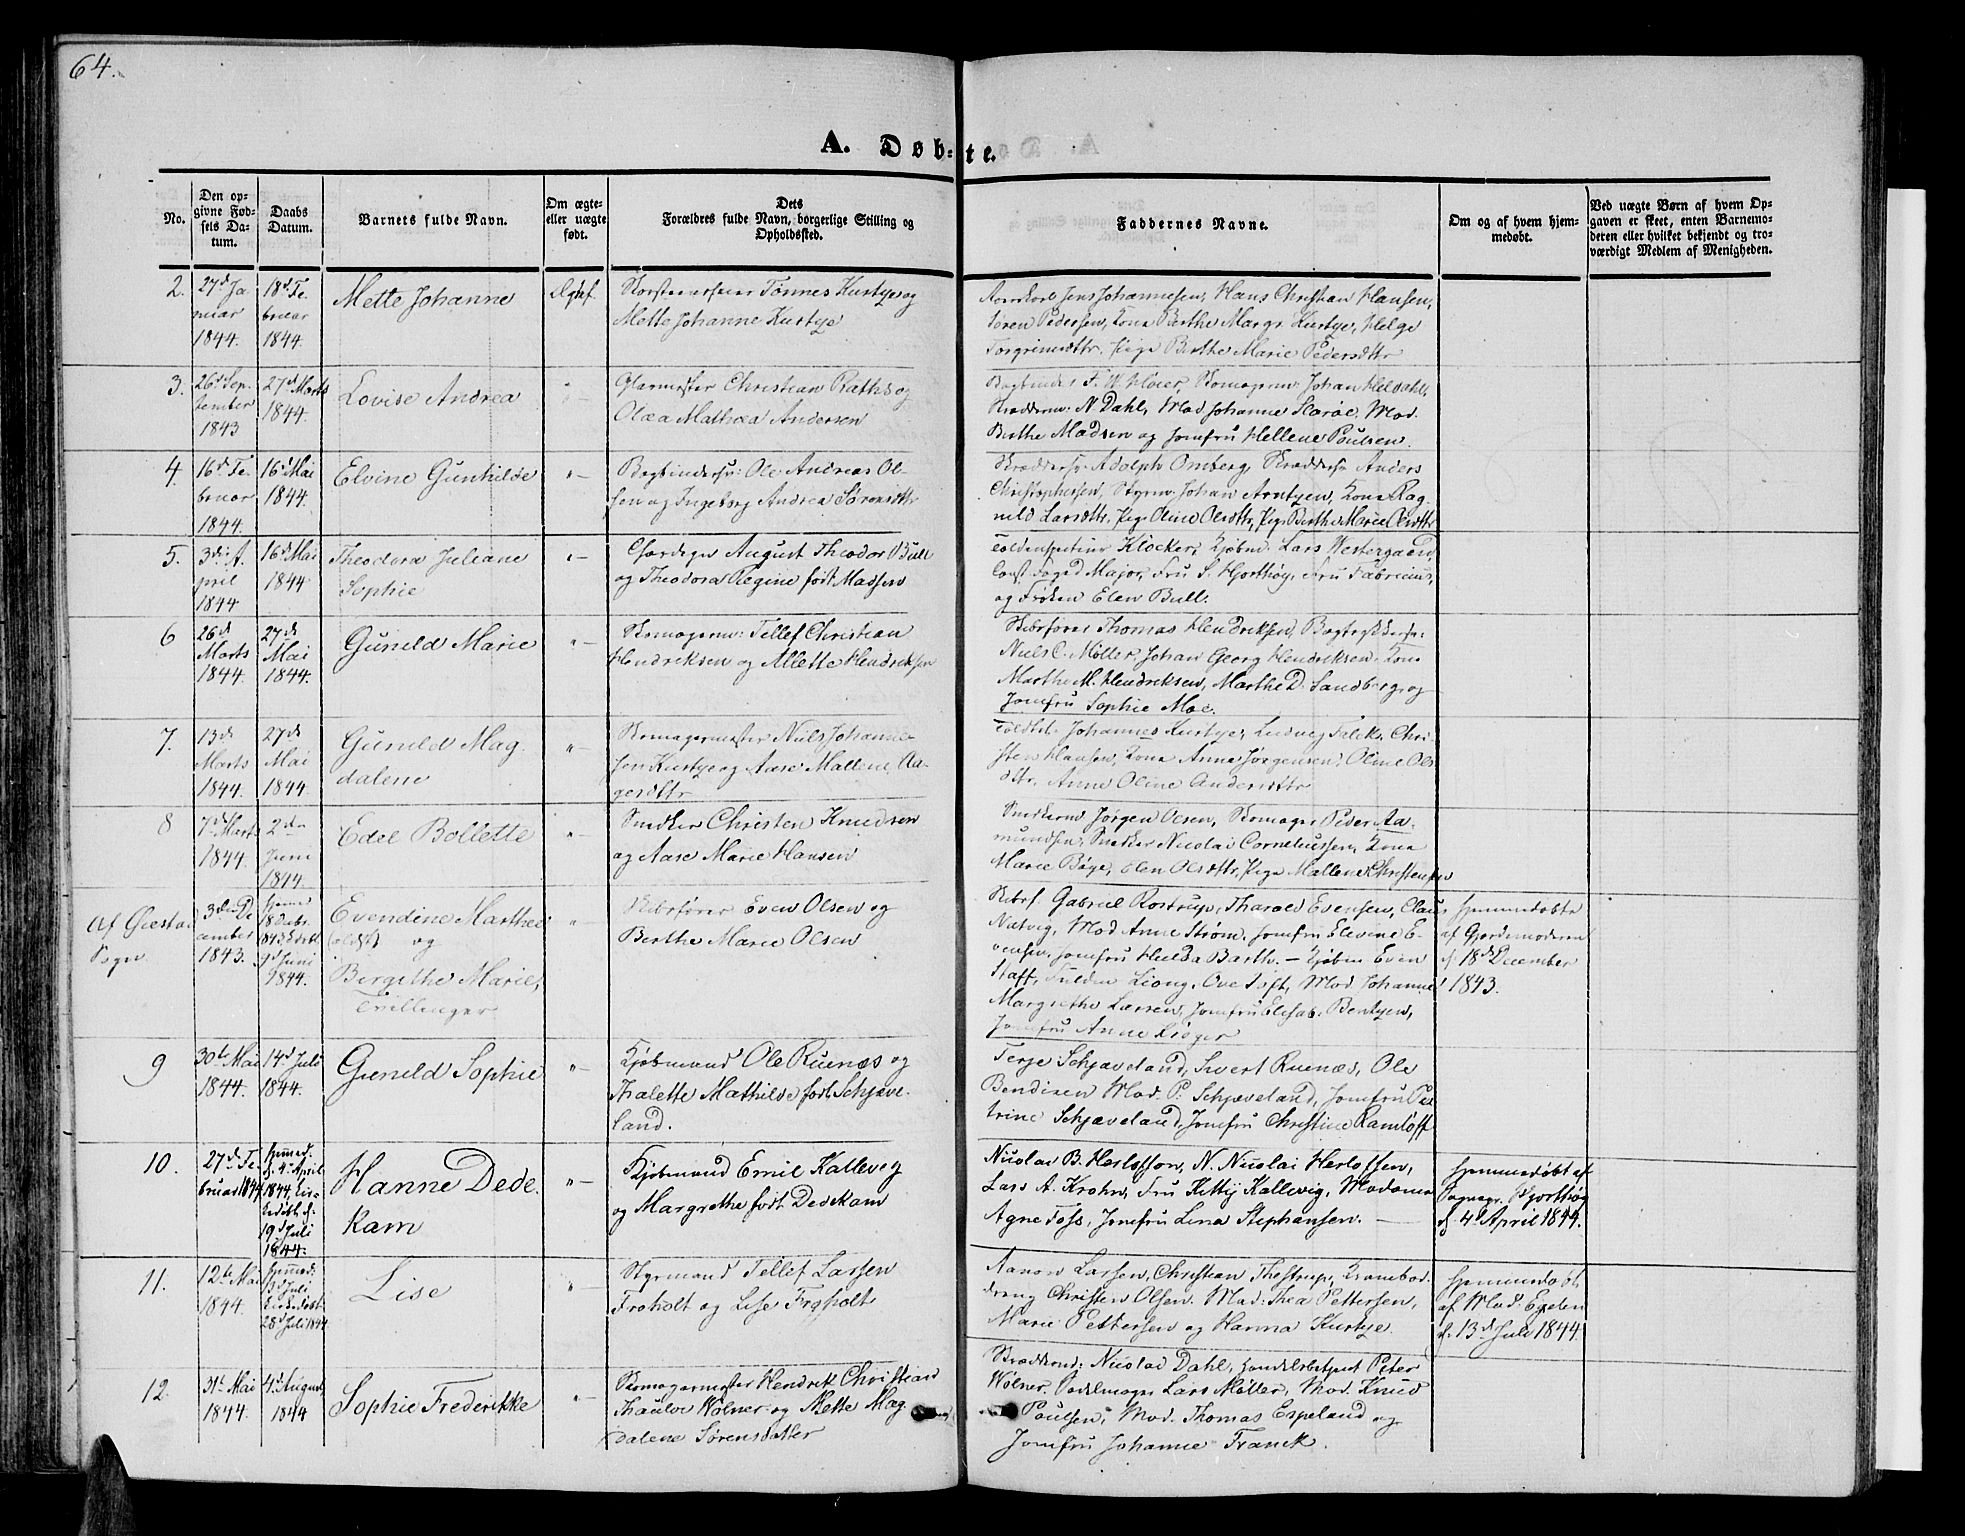 64.
A. Døb-te.
No.
Den opgivne Fødsels Datum.
Daabs Datum.
Barnets fulde Navn.
Om ægte- eller uægte født.
Dets Forældres fulde Navn, borgerlige Stilling og Opholdssted.
Faddernes Navne.
Om og af hvem hjemmedøbt.
Ved uægte Børn af hvem Opgaven er skeet, enten Barnemoderen eller hvilket bekjendt og troværdigt Medlem af Menigheden.
2.
27d Januar 1844.
18d. Februar 1844.
Mette Johanne
Ægtef.
Tønnes Kustye og
Mette Johanne Kustye
Jens Johannesen, Hans Christian Hansen,
Søren Pedersen, Kona Berthe Margr. Kustye, Helge
Torgrimsdttr. Pige Berthe Marie Pedersdttr
3.
26d September 1843
27d Marts 1844.
Lovise Andrea
"-
Glarmester Christian Raths og
Olæa Mathæa Andersen
Bogbinder F. W. Høier, Skomagerm. Johan Heldahl,
Skrædderm: N. Dahl, Mad Johanne Skarøe, Mad.
Berthe Madsen og Jomfru Hellene Poulsen.
4.
16d. Februar 1844.
16d Mai 1844.
Elvine Gunhilde
"-
Bogbindersv: Ole Andreas Ol-
sen og Ingeborg Andrea Sørensdttr
Skræddersv Adolph Omberg, Skræddersv Anders
Christophersen, Styrm. Johan Arntzen, Kona Rag-
nild Larsdttr, Pige Oline Olsdttr, Pige Berthe Marie Olsdttr
5.
3die April 1844
16d Mai 1844.
Theodora Juliane
Sophie
"-
August Theodor Bull
og Theodora Regine født Madsen
Toldinspecteur Klöcker, Kjøbm. Lars Westergaard,
Const. Foged Major, Fru S. Hjorthøy, Fru Fabricius,
og Frøken Elen Bull.
6
26d Marts 1844.
27d Mai 1844.
Guneld Marie
"-
Skomagerm: Tellef Christian
Hendriksen og Allette Hendriksen
Skibsfører Thomas Hendriksen, Bogtrykkersv.
Niels C. Møller, Johan Georg Hendriksen, Kona
Marthe M. Hendriksen, Marthe D. Sandberg og
Jomfru Sophie Moe.
7.
13d Marts 1844.
27d Mai 1844.
Guneld Mag-
dalene
"-
Skomagermester Niels Johanne-
sen Kustye og Aase Mallene Aa-
gesdttr
Toldbet. Johannes Kustye, Ludvig Falck, Chri-
sten Hansen, Kona Anna Jørgensen, Oline Ols-
dttr, Anne Oline Andersdttr
8
7d Marts 1844.
2den Juni 1844
Edel Bollette
"-
Snedker Christen Knudsen
og Aase Marie Hansen
Snedkerm Jørgen Olsen, Skomager Peder Aa-
mundsen, Snedker Nicolai Corneliussen, Kona
Marie Bøge, Elen Olsdttr, Pige Mallene Christensen
Af Øiestad
Sogn
3die December 1843.
hjemme 18 Decbr 1843
9d Juni 1844.
Evendine Marthea
(eldst) og
Bergithe Marie,
Tvillinger
"
Skibsfører Even Olsen og
Berthe Marie Olsen
Skibsf. Gabriel Rostrup, Tharald Evensen, Claus
Natvig, Mad Anne Strøm, Jomfru Elevine E-
vensen, Jomfru Hulda Barth. – Kjøbm Even
Staff, Fulden Liong, Ove Toft, Mad Johanne
Margrethe Larsen, Jomfru Elisab. Bentzen,
Jomfru Anne Krøger
Hjemmedøbte
af Gjordemoderen
d. 18d December
1843.
9
30te Mai 1844.
14d Juli 1844.
Guneld Sophie
"-
Kjøbmand Ole Ruenæs og
Thalette Mathilde født Schjæve-
land.
Terje Schjæveland, Sivert Ruenæs, Ole
Bendixen Mad. P. Schjæveland, Jomfru Pe-
trine Schjæveland, Jomfru Christine Ramløff
10.
27d Februar 1844
hjemmed. d. 4d April 1844, d. 19d Juli 1844.
Hanne Dede-
kam
"-
Kjøbmand Emil Kallevig
og Margrethe født Dedekam
Nicolai B. Herlofson, N. Nicolai Herlofsen,
Lars A. Krohn, Fru Kitty Kallevig, Madame
Agne Foss, Jomfru Lina Stephansen. —
Hjemmedøbt af
Sognepr. Hjorthøy
d. 4d April 1844.
11.
12te Mai 1844.
hjemmed: 13d Juli Kirkedøbt 28d Juli 1844
Lise
"
Styrmand Tellef Larsen
Froholt og Lise Froholt
Aanon Larsen, Christian Thestrup, Krambod-
dreng Christen Olsen. Mad: Thea Pettersen,
Marie Pettersen og Hanna Kustye.
Hjemmedøbt
af Mad. Egelen
d. 13d Juli 1844.
12.
31te Mai 1844.
4d August 1844
Sophie Frederikke
"-
Skomagermester Hendrik Christian
Thaulov Wølner og Mette Mag-
dalene Sørensdatter
Skrædderm: Nicolai Dahl, Handelsbetjent Peter
Wølner, Sadelmager Lars Møller, Mad. Knud
Poulsen, Mad. Thomas Espeland og
Jomfru Johanne Franck.